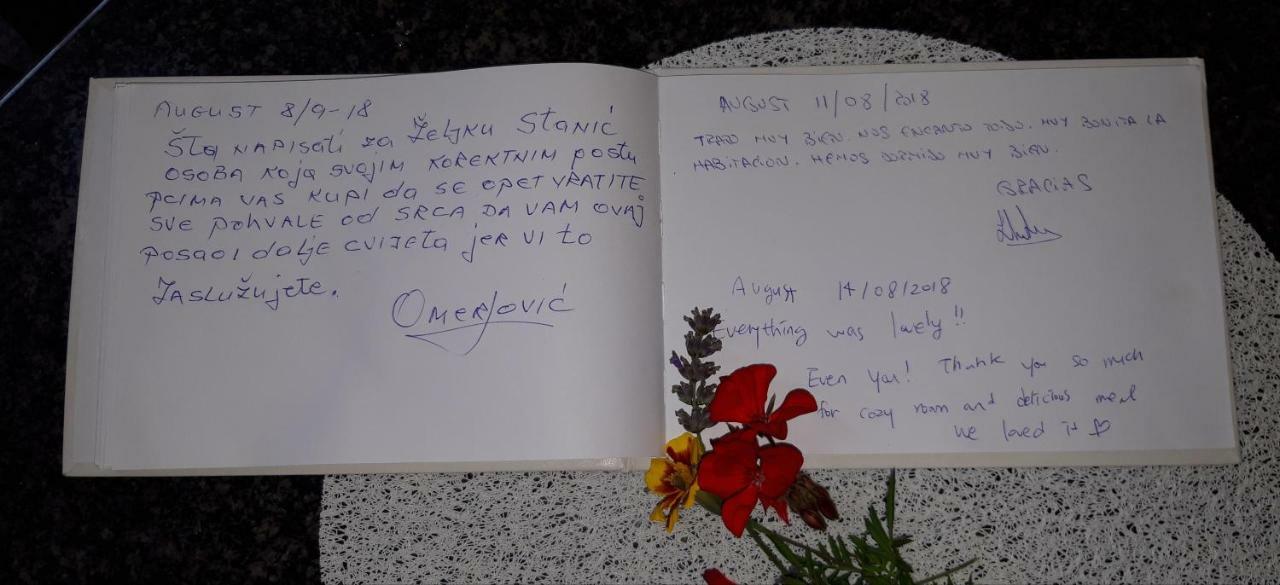 AUGUST 8/9-18
Šta NAPISati za Željku Stanić
OSOBA KOJA SVOJIM KOREKTNIM postu
PCIMA VAS KUPI da SE OPET VRATITE
SVE POHVALE od SRCA DA VAM OVAJ
POSAO I dalje CVIJETA jer VI to
ZASLUŽUJETE.
OMEROVIĆ
AUGUST 11/08/2018
TRATO MUY BIEN. NOS ENCANTO TODO. MUY BONITA LA
HABITACION. HEMOS DORMIDO MUY BIEN.
GRACIAS
August 14/08/2018
Everything was lovely!!
Even You! Thank you so much
for cozy room and delicious meal
We loved it ♡